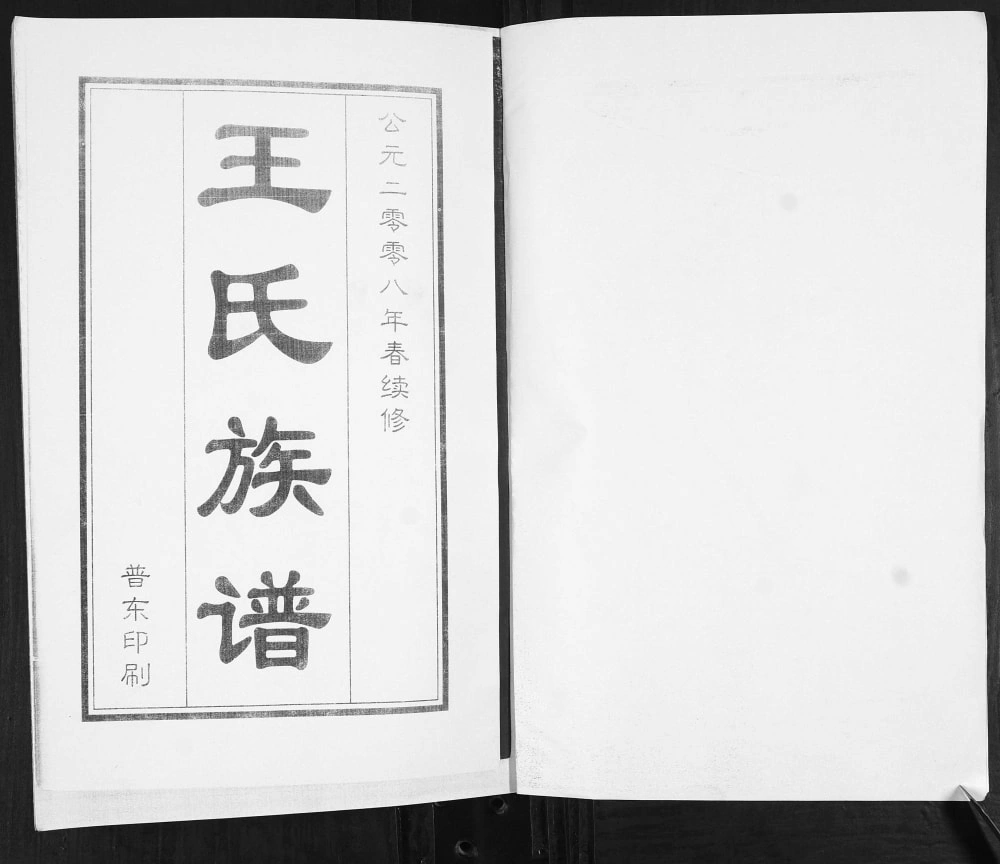 公元二零零八年春续修
王氏族谱
普东印刷